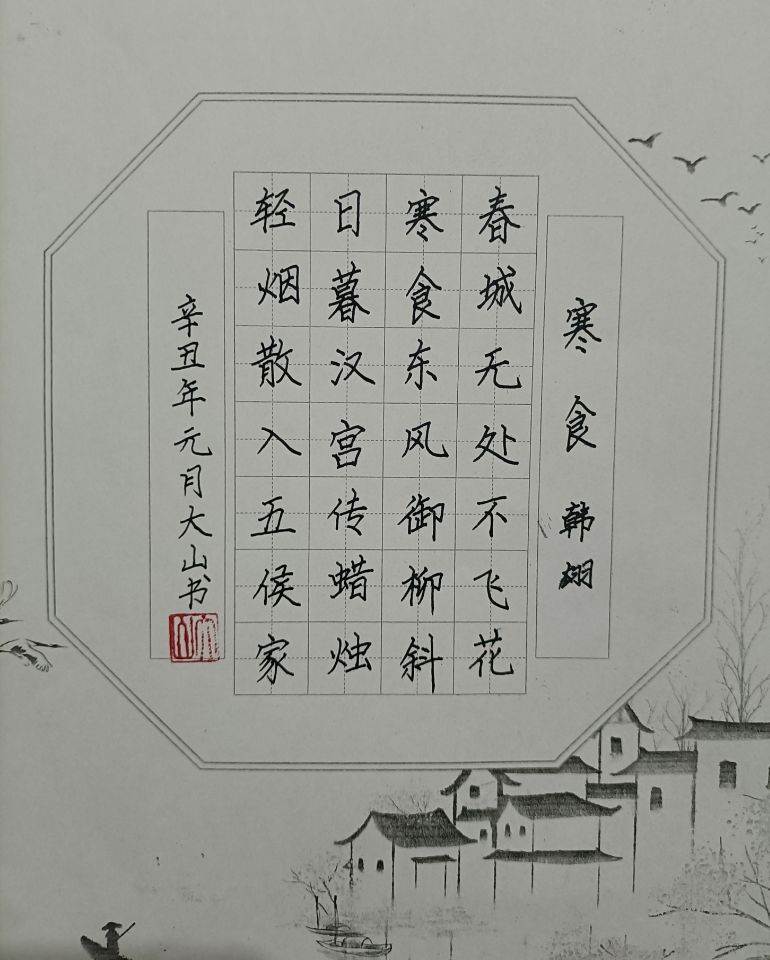 寒食 韩翃
春城无处不飞花
寒食东风御柳斜
日暮汉宫传蜡烛
轻烟散入五侯家
辛丑年元月大山书
大山